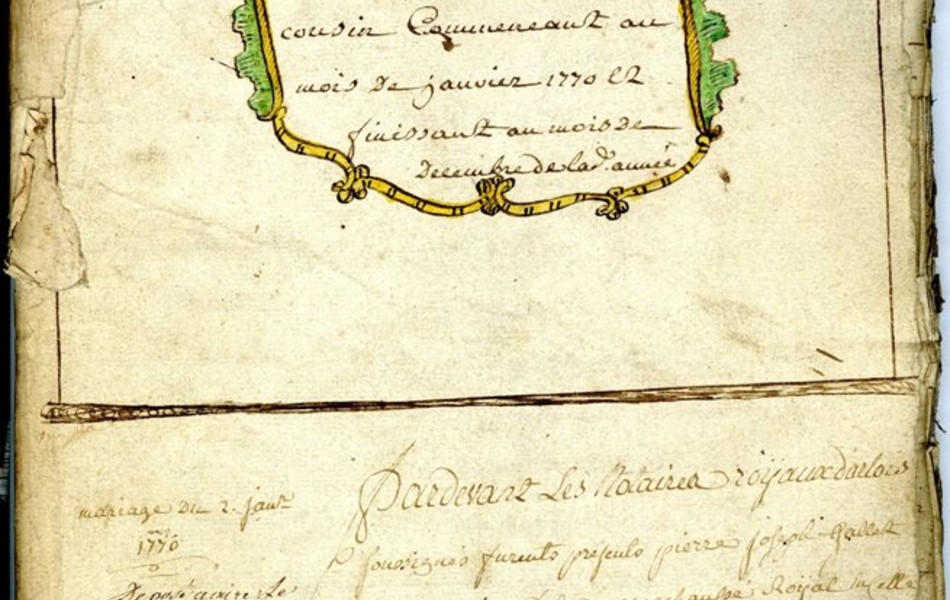 cousin Commencant au
mois De janvier 1770 et
finissant au mois de
Decembre de lad. année
Pardevant Les Notaires roijaux d'artois
mariage du 2. janv
1770
soussignés furents présents pierre joseph Gallet
Royal